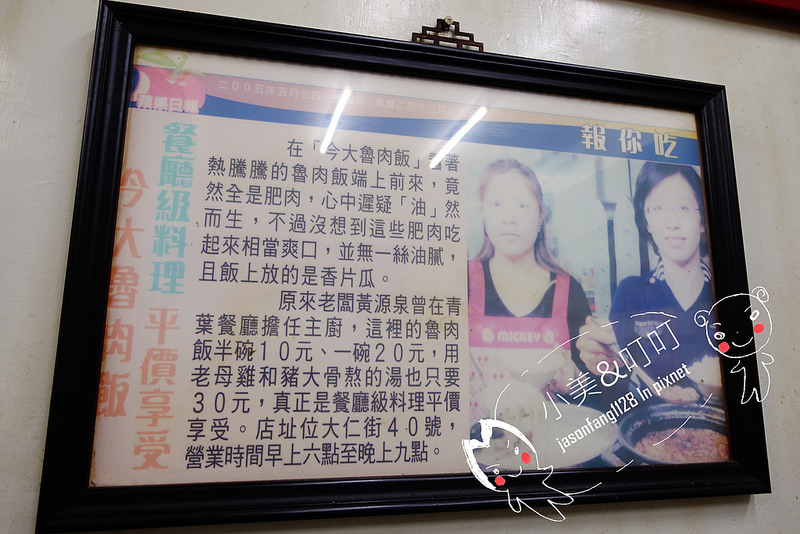 蘋果日報
二00五年五月七日
報你吃
餐廳級料理 平價享受
今大魯肉飯
在「今大魯肉飯」看著
熱騰騰的魯肉飯端上前來，竟
然全是肥肉，心中遲疑「油」然
而生，不過沒想到這些肥肉吃
起來相當爽口，並無一絲油膩，
且飯上放的是香片瓜。
原來老闆黃源泉曾在青
葉餐廳擔任主廚，這裡的魯肉
飯半碗10元、一碗20元，用
老母雞和豬大骨熬的湯也只要
30元，真正是餐廳級料理平價
享受。店址位大仁街40號，
營業時間早上六點至晚上九點。
MICKEY
小美&叮叮
jasonfang1128 In pixnet